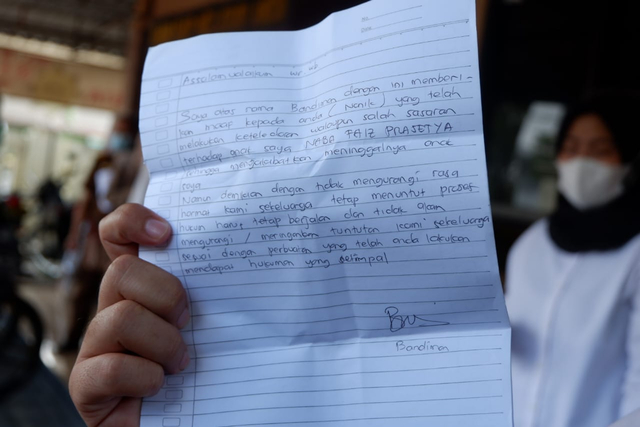 Assalamualaikum wr wb
Saya atas nama Bandiman dengan ini memberi-
kan maaf kepada anda (Nanik) yang telah
melakukan keteledoran walaupun salah sasaran
terhadap anak saya NABA FAIZ PRASETYA
mengakibatkan meninggalnya anak
saya
Namun demikian dengan tidak mengurangi rasa
hormat kami sekeluarga tetap menuntut proses
hukum harus tetap berjalan dan tidak akan
mengurangi / meringankan tuntutan kami sekeluarga
sesuai dengan perbuatan yang telah anda lakukan
mendapat hukuman yang setimpal
Bandiman